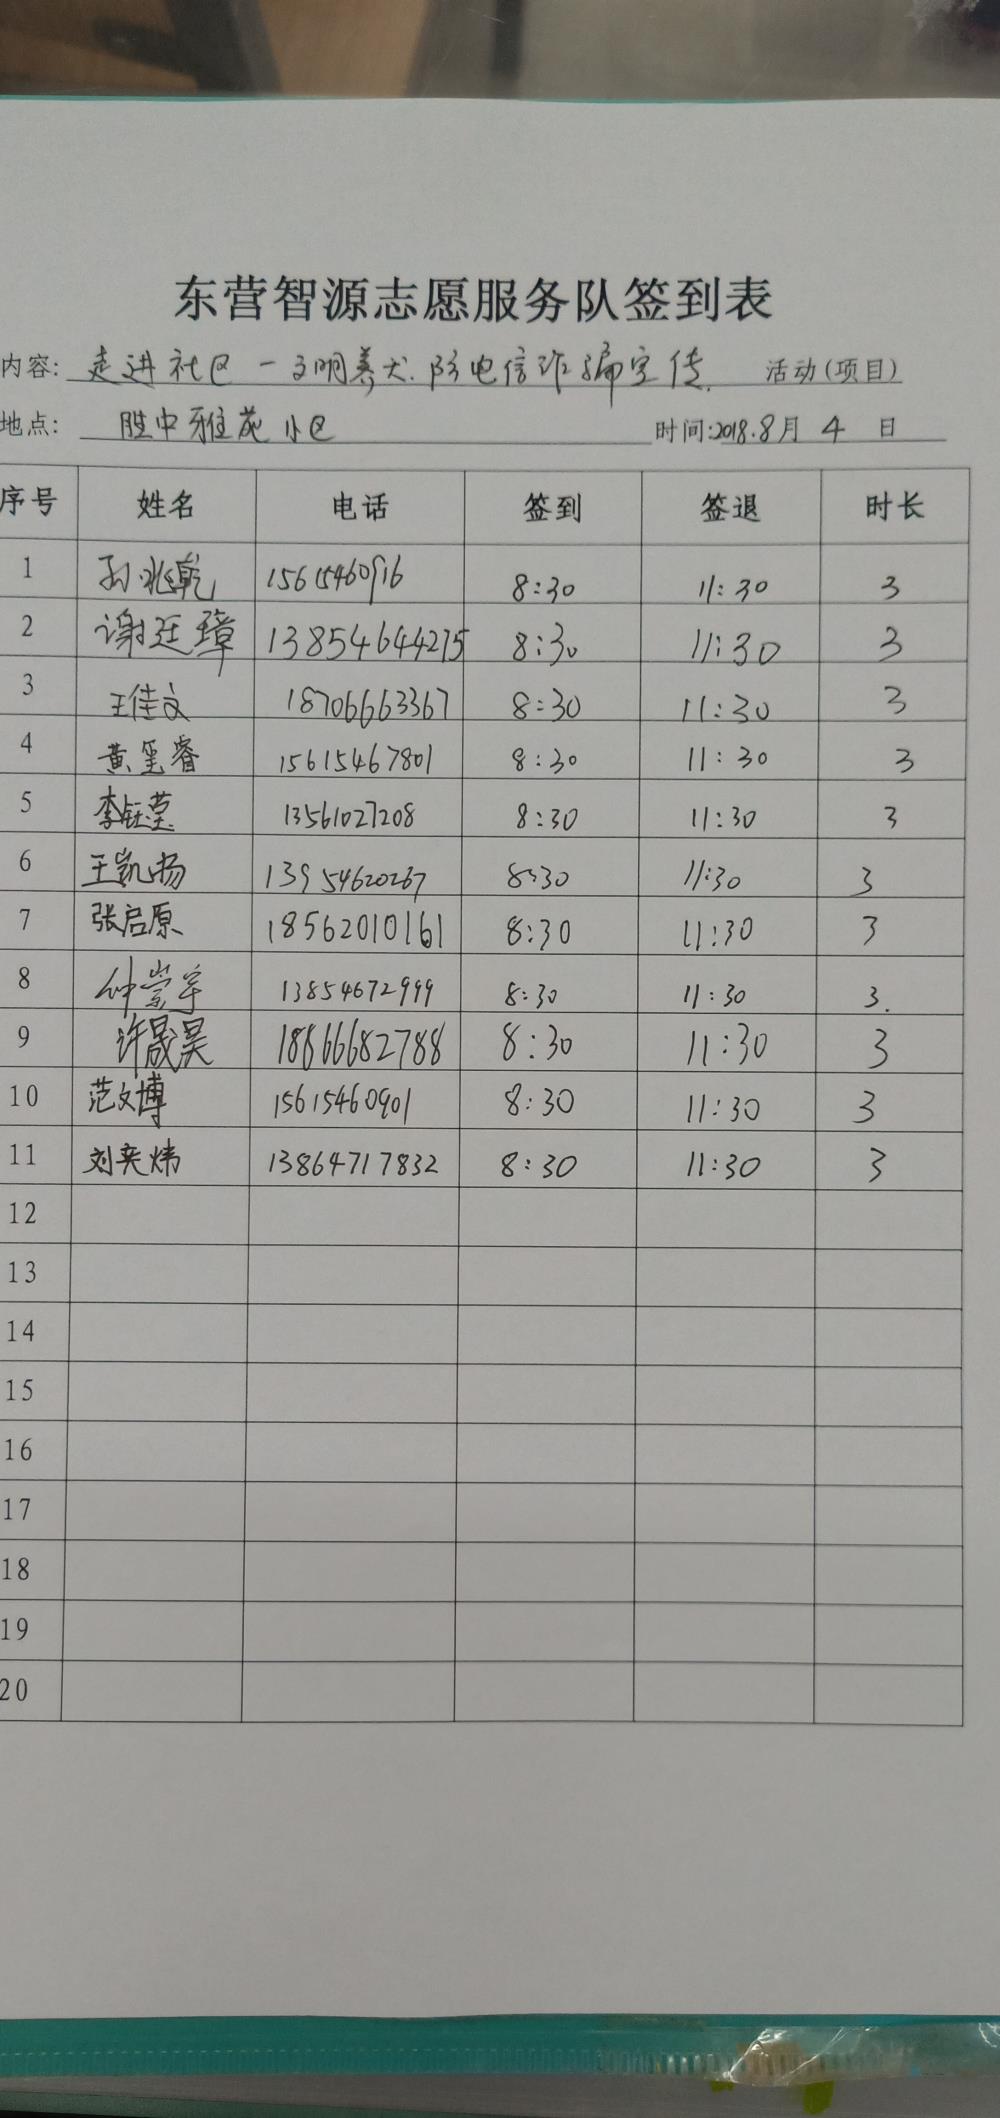 东营智源志愿服务队签到表
内容: 走进社区-文明养犬.防电信诈骗宣传. 活动(项目)
地点: 胜中雅苑小区 时间:2018.8月 4 日
序号 姓名 电话 签到 签退 时长
1 孙兆乾 15615460916 8:30 11:30 3
2 谢廷璋 13854644275 8:30 11:30 3
3 王佳文 18706663367 8:30 11:30 3
4 黄玺睿 15615467801 8:30 11:30 3
5 李钰莹 13561027208 8:30 11:30 3
6 王凯旸 13954620267 8:30 11:30 3
7 张启原 18562010161 8:30 11:30 3
8 仲崇宇 13854672999 8:30 11:30 3.
9 许晟昊 18666682788 8:30 11:30 3
10 范文博 15615460901 8:30 11:30 3
11 刘奕炜 13864717832 8:30 11:30 3
12
13
14
15
16
17
18
19
20